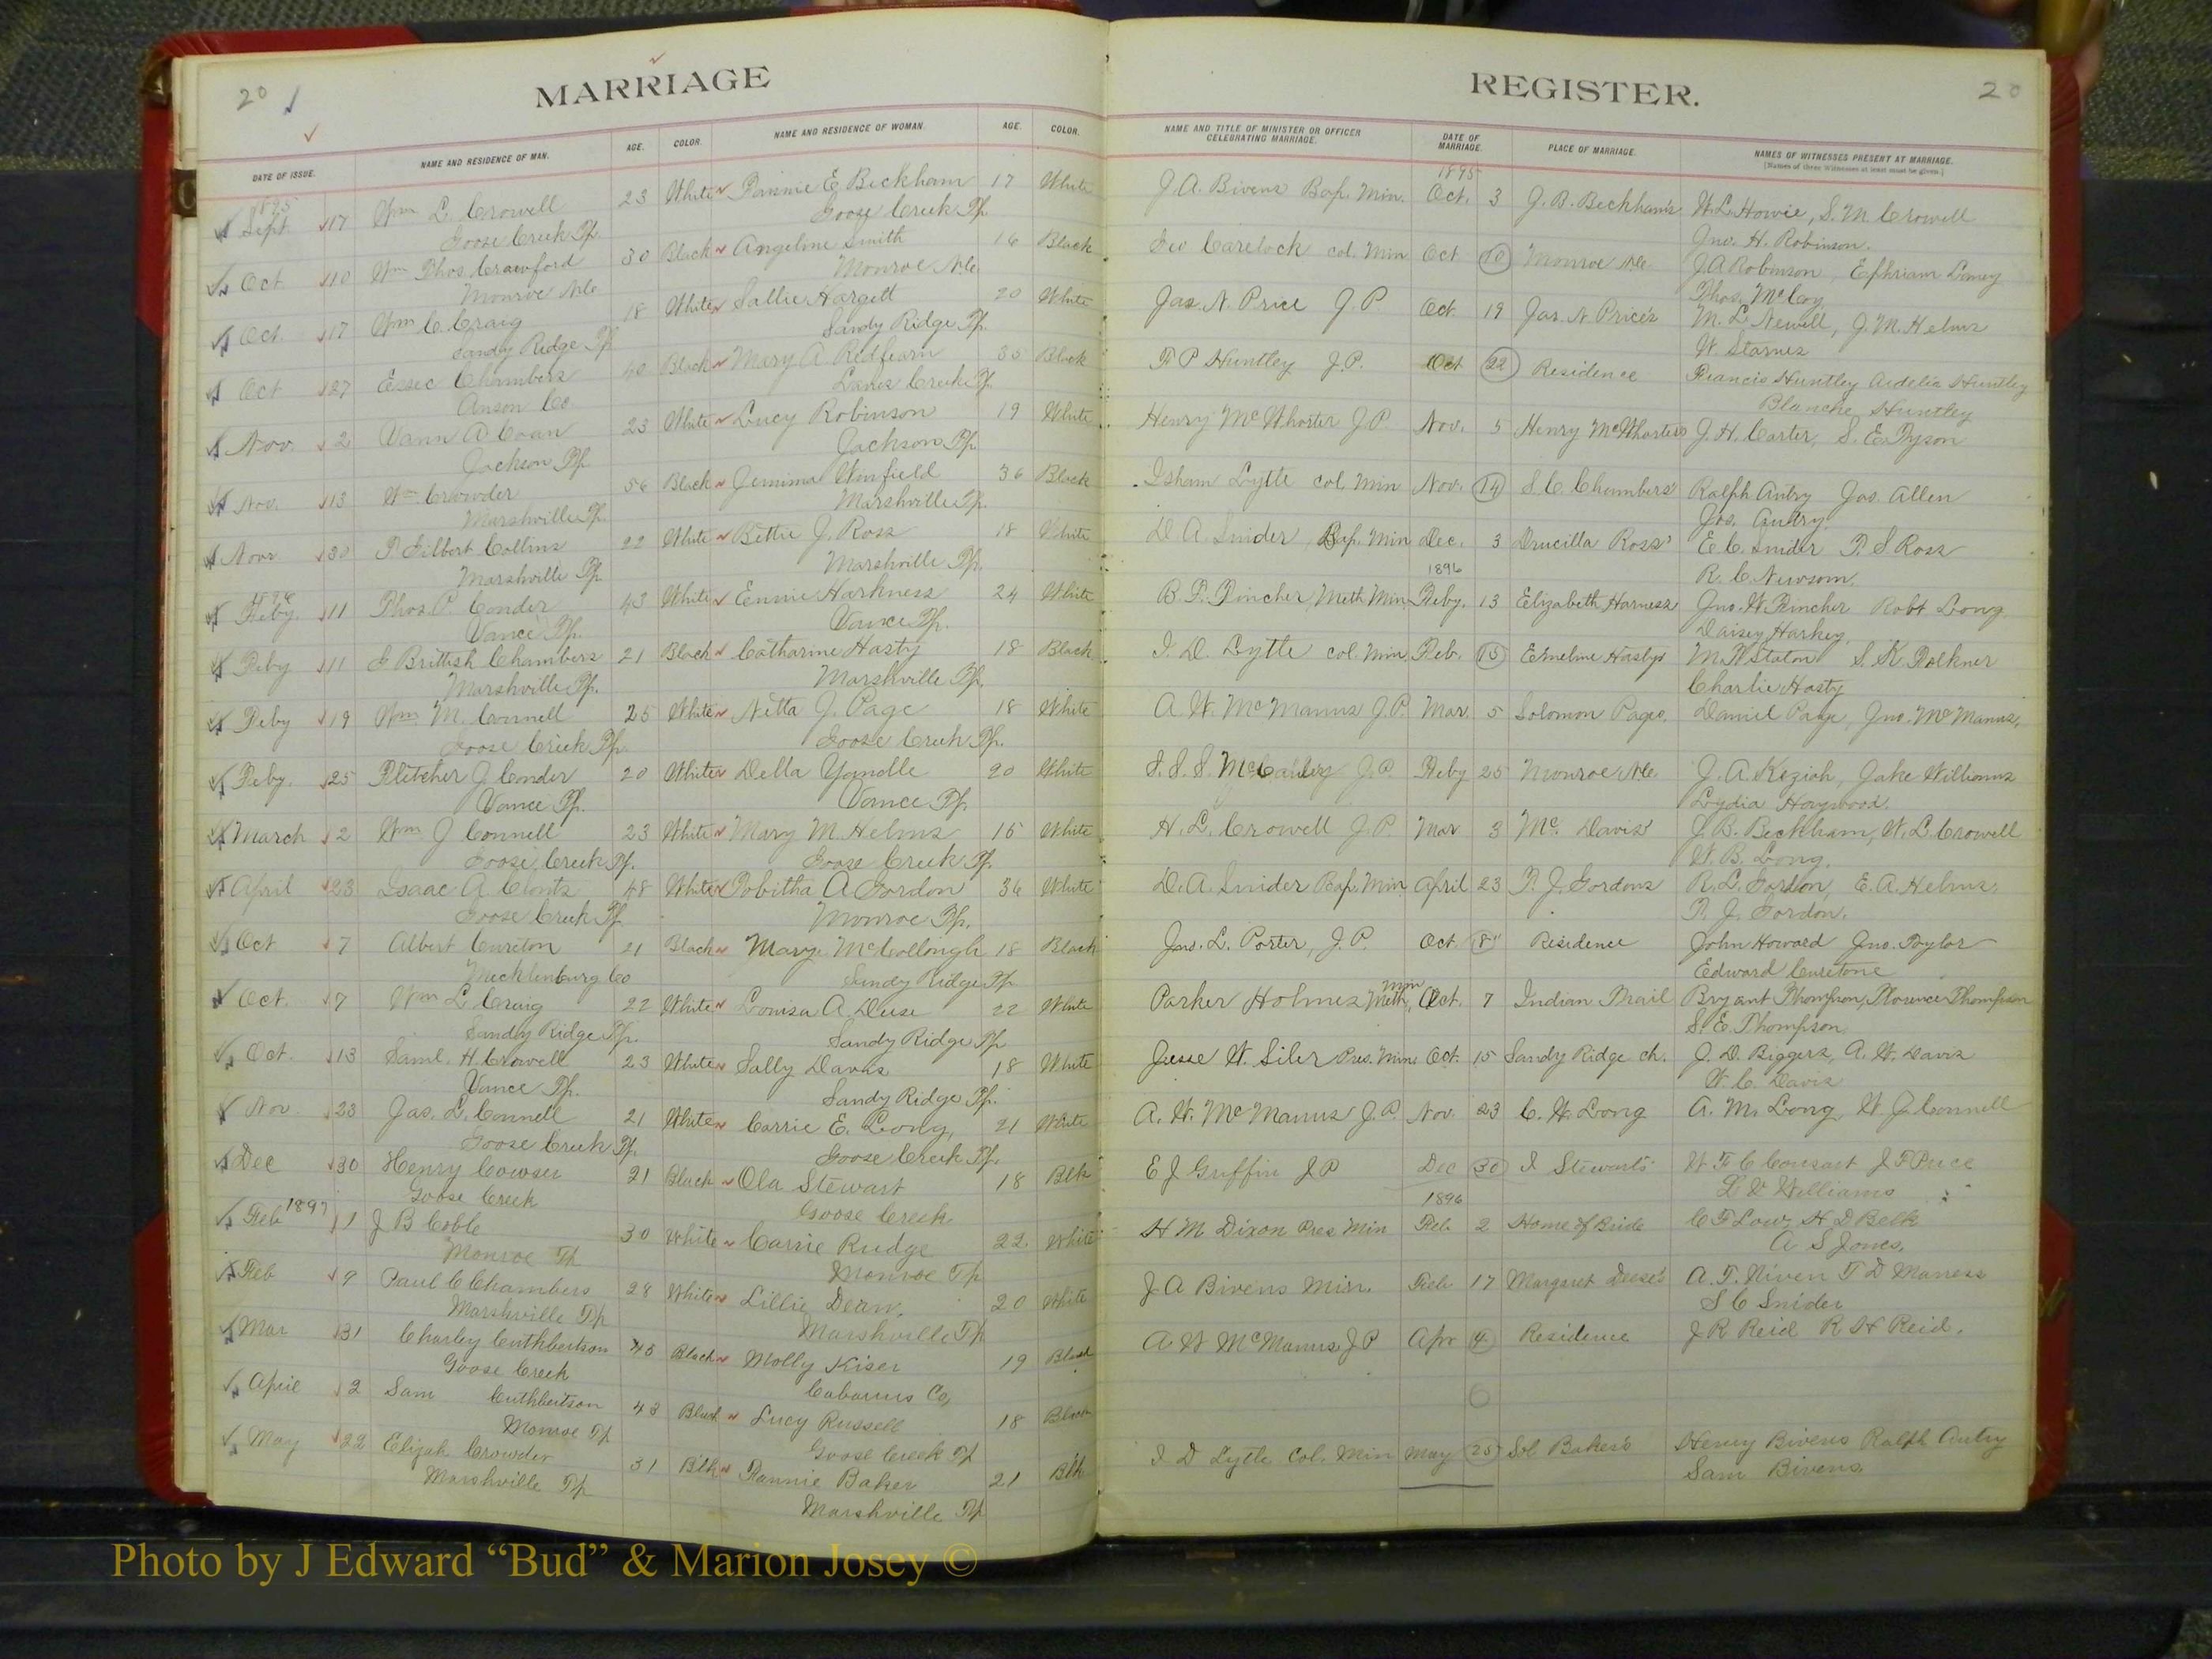 20
MARRIAGE
DATE OF ISSUE. NAME AND RESIDENCE OF MAN. AGE. COLOR. NAME AND RESIDENCE OF WOMAN. AGE. COLOR.
1895
Sept 17 Wm L. Crowell 23 White Fannie E Beckham 17 White
Goose Creek Tp. Goose Creek Tp.
Oct 10 Wm Thos Crawford 30 Black Angeline Smith 16 Black
Monroe N.C. Monroe N.C.
Oct. 17 Wm C. Craig 18 White Sallie Hargett 20 White
Sandy Ridge Tp Sandy Ridge Tp.
Oct 27 Essec Chambers 40 Black Mary A. Redfearn 35 Black
Anson Co Lanes Creek Tp
Nov. 2 Vann A. Coan 23 White Lucy Robinson 19 White
Jackson Tp Jackson Tp.
Nov. 13 Wm Crowder 56 Black Jemima Winfield 36 Black
Marshville Tp. Marshville Tp.
Novr 30 T. Gilbert Collins 22 White Bettie J. Ross 18 White
Marshville Tp. Marshville Tp.
1896
Feby. 11 Thos. P. Conder 43 White Ennie Harkness 24 White
Vance Tp. Vance Tp.
Feby 11 Brittish Chambers 21 Black Catharine Hasty 18 Black
Marshville Tp. Marshville Tp.
Feby 19 Wm. M. Connell 25 White Netta J. Page 18 White
Goose Creek Tp. Goose Creek Tp.
Feby. 25 Fletcher J. Conder 20 White Della Yandle 20 White
Vance Tp. Vance Tp.
March 2 Wm J Connell 23 White Mary M. Helms 15 White
Goose Creek Tp. Goose Creek Tp.
April 23 Isaac A. Clontz 48 White Tobitha A. Gordon 36 White
Goose Creek Tp Monroe Tp.
Oct 7 Albert Cureton 21 Black Mary McCollongh 18 Black
Mecklenburg Co Sandy Ridge Tp
Oct. 7 Wm L. Craig 22 White Louisa A. Deese 22 White
Sandy Ridge Tp. Sandy Ridge Tp
Oct. 13 Saml. H. Crowell 23 White Sally Davis 18 White
Vance Tp. Sandy Ridge Tp.
Nov. 23 Jas. L. Connell 21 White Carrie E. Long, 21 White
Goose Creek Tp. Goose Creek Tp.
Dec 30 Henry Cowser 21 Black Ola Stewart 18 Blk
Goose Creek Goose Creek
1897
Feb 1 J B Coble 30 White Carrie Rudge 22 White
Monroe Tp Monroe Tp
Feb 9 Paul C Chambers 28 White Lillie Dean. 20 White
Marshville Tp Marshville Tp
Mar 31 Charley Cuthbertson 45 Black Molly Kiser 19 Black
Goose Creek Cabarrus Co,
April 2 Sam Cuthbertson 43 Black Lucy Russell 18 Black
Monroe Tp Goose Creek Tp
May 22 Elijah Crowder 31 Blk Fannie Baker 21 Blk
Marshville Tp Marshville Tp
REGISTER.
20
NAME AND TITLE OF MINISTER OR OFFICER CELEBRATING MARRIAGE. DATE OF MARRIAGE. PLACE OF MARRIAGE. NAMES OF WITNESSES PRESENT AT MARRIAGE.
[Names of three Witnesses at least must be given.]
1895
J. A. Bivens Bap. Min. Oct. 3 J. B. Beckham's W. L. Howie, S. M. Crowell
Jno. H. Robinson.
Geo Carelock col. Min Oct 10 Monroe N.C. J A Robinson, Ephriam Laney
Thos. McCoy
Jas. N. Price J. P. Oct 19 Jas. N Price's M. L. Newell, J. M. Helms
W. Starnes
T P Huntley J. P. Oct 22 Residence Francis Huntley Ardelia Huntley
Blanche Huntley
Henry McWhorter J. P. Nov. 5 Henry McWhorters J. H. Carter, S. E. Tyson
Isham Lytle col Min Nov. 14 S. C. Chambers' Ralph Autry Jas. Allen
Jas. Autry.
D. A. Snider, Bap. Min Dec. 3 Drucilla Ross' E. C. Snider T. S Ross
R. C. Newsom.
1896
B. F. Fincher, Meth Min Feby. 13 Elizabeth Harness Jno. W. Fincher Robt Long
Daisey Harkey.
I. D. Lytle col. Min. Feb. 15 Emeline Hasty's M. W Staton S. K. Folkner
Charlie Hasty
A. W. McManus J. P. Mar 5 Solomon Pages. Daniel Page, Jno. McManus,
S. S. S. McCauley J. P. Feby 25 Monroe N.C. J. A. Keziah, Jake Williams
Lydia Haywood.
H. L. Crowell J. P. Mar 3 Mc. Davis' J. B. Beckham, W. L. Crowell
W. B. Long.
D. A. Snider Bap. Min April 23 T. J. Gordons R. L. Gordon, E. A. Helms.
T. J. Gordon.
Jas. L. Porter, J. P. Oct. 8 Residence John Howard Jno. Taylor
Edward Curetone
Parker Holmes Meth. Min Oct. 7 Indian Trail Bryant Thompson, Florence Thompson
S. E. Thompson
Jesse W. Siler Pres. Min. Oct. 15 Sandy Ridge ch. J. D. Biggers, A. W. Davis
W. C. Davis
A. W. McManus J. P. Nov. 23 C. W. Long A. M. Long, W. J. Connell
E J Griffin J P Dec 30 I Stewarts W F C Consart J F Price
L V Williams
1896
H M Dixon Pres Min Feb 2 Home of Bride C F Low, H D Belk
A S Jones,
J A Bivens Min. Feb 17 Margaret Deese's A. F. Niven T D Maness
S C Snider
A W McManus J P Apr 4 Residence J R Reid R H Reid.
I D Lytle Col. Min May 23 Sol Baker's Henry Bivens Ralph Autry
Sam Bivens
Photo by J Edward “Bud” & Marion Josey ©